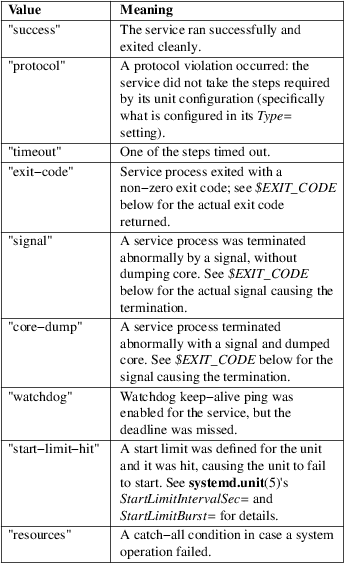 Value Meaning
"success" The service ran successfully and
exited cleanly.
"protocol" A protocol violation occurred: the
service did not take the steps required
by its unit configuration (specifically
what is configured in its Type=
setting).
"timeout" One of the steps timed out.
"exit−code" Service process exited with a
non−zero exit code; see $EXIT_CODE
below for the actual exit code
returned.
"signal" A service process was terminated
abnormally by a signal, without
dumping core. See $EXIT_CODE
below for the actual signal causing the
termination.
"core−dump" A service process terminated
abnormally with a signal and dumped
core. See $EXIT_CODE below for the
signal causing the termination.
"watchdog" Watchdog keep−alive ping was
enabled for the service, but the
deadline was missed.
"start−limit−hit" A start limit was defined for the unit
and it was hit, causing the unit to fail
to start. See systemd.unit(5)'s
StartLimitIntervalSec= and
StartLimitBurst= for details.
"resources" A catch−all condition in case a system
operation failed.